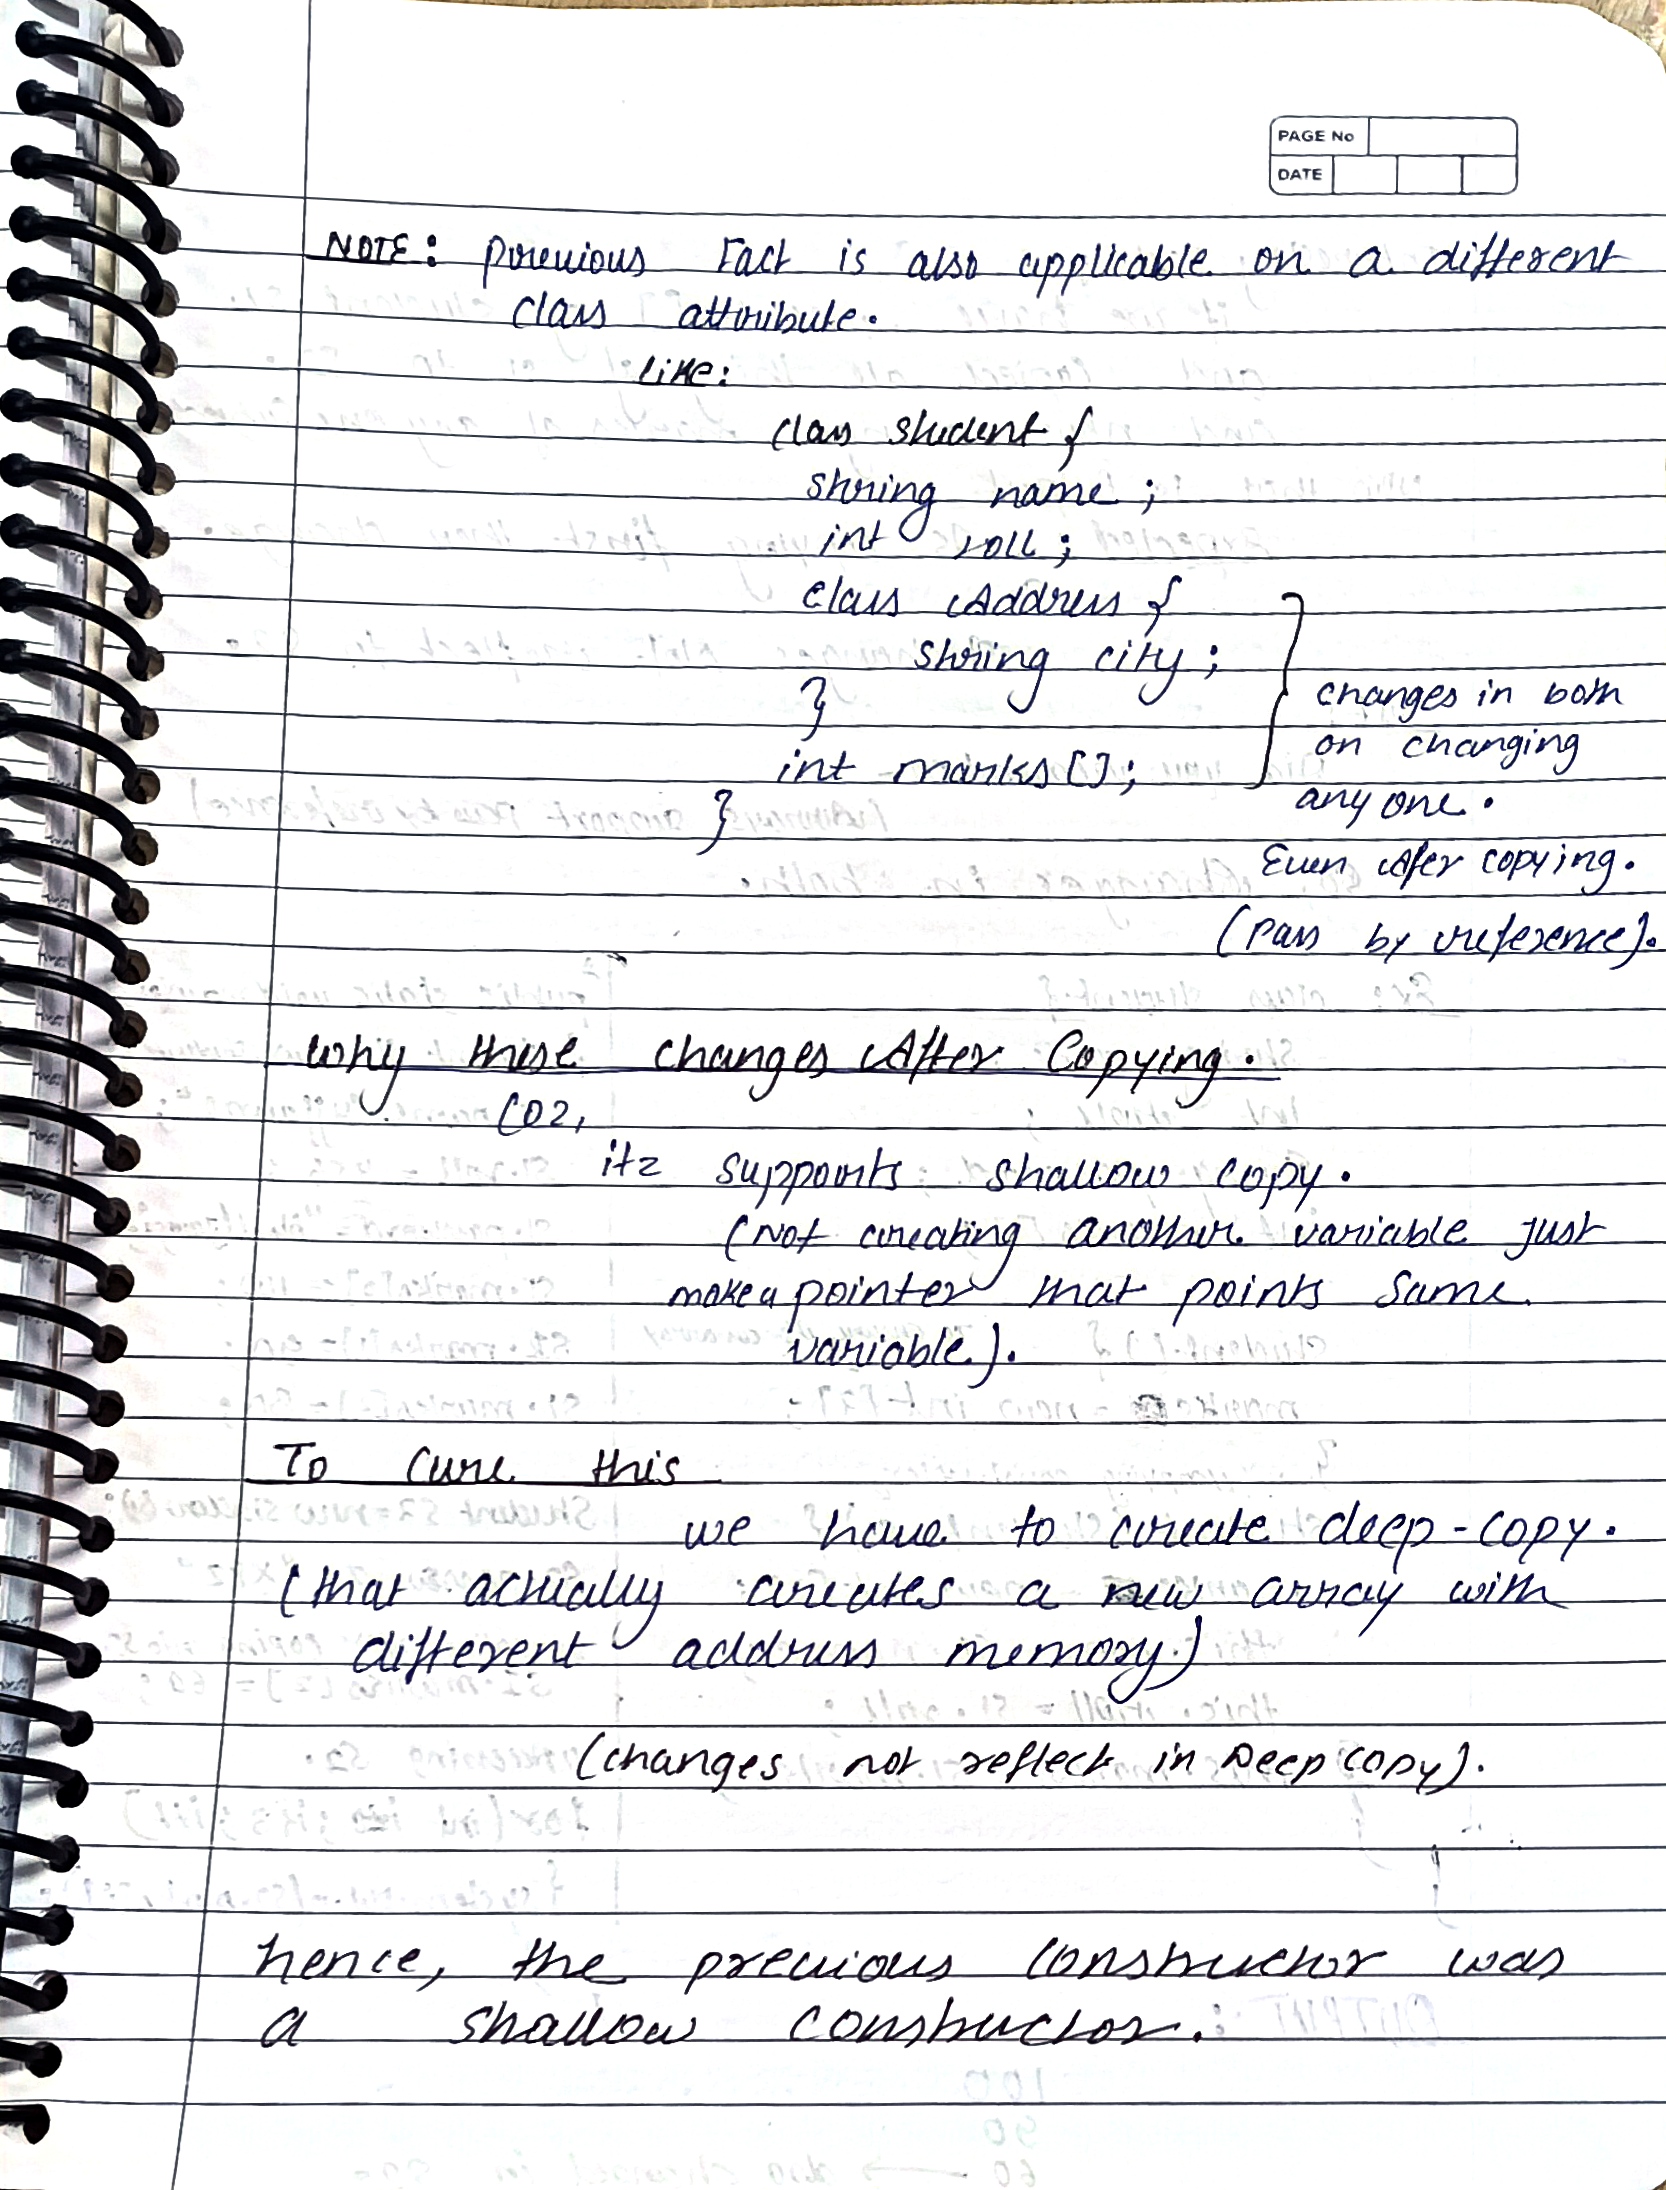 PAGE No
DATE
NOTE: previous Fact is also applicable on a different
class attribute.
like:
class student {
string name ;
int roll ;
class Address {
string city ;
}
int marks [] ;
}
changes in both
on changing
any one.
Even After copying.
(pass by reference).
Why these changes After Copying.
Coz,
itz supports shallow copy.
(Not creating another variable just
make a pointer that points same
variable).
To Cure this
we have to create deep-copy.
(that actually creates a new array with
different address memory.)
(changes not reflect in Deep copy).
hence, the previous constructor was
a shallow constructor.